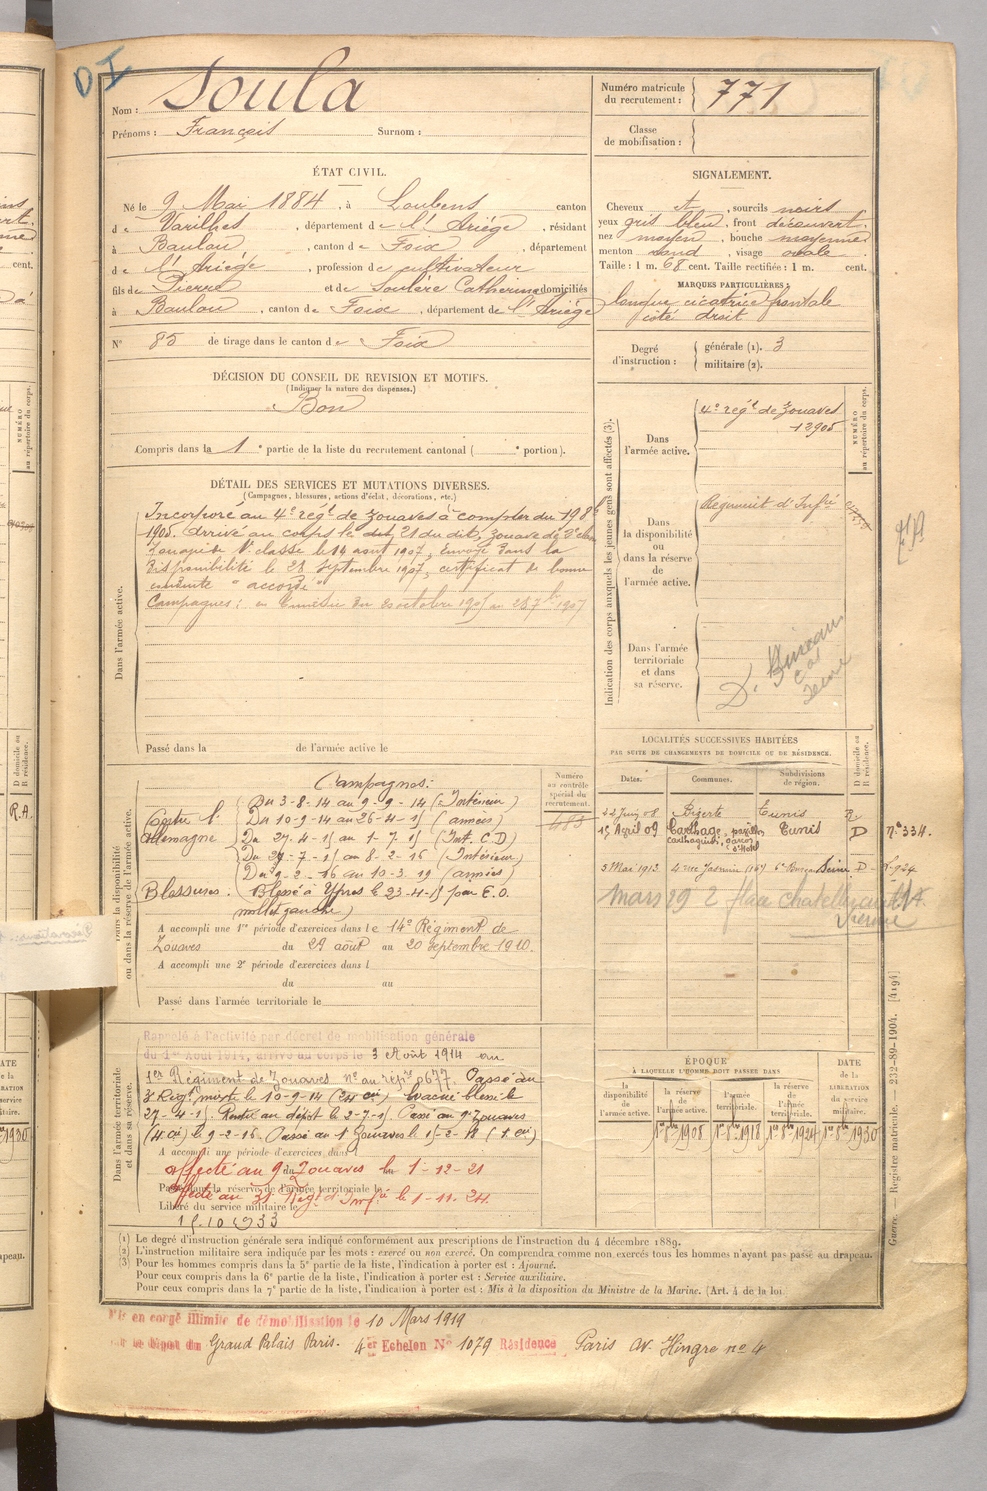 DI
Nom : Soula
Prénoms : François Surnom :
Numéro matricule du recrutement : 771
Classe de mobilisation :
ÉTAT CIVIL.
Né le 9 Mai 1884, à Loubens canton
de Varilhes, département de l'Ariège, résidant
à Baulou, canton de Foix, département
de l'Ariège, profession de cultivateur
fils de Pierre et de Soulère Catherine domiciliés
à Baulou, canton de Foix, département de l'Ariège
N° 85 de tirage dans le canton de Foix
SIGNALEMENT.
Cheveux , sourcils noirs
yeux gris bleu, front découvert
nez moyen, bouche moyenne
menton rond, visage ovale
Taille : 1 m. 68 cent. Taille rectifiée : 1 m. cent.
MARQUES PARTICULIÈRES :
longue cicatrice frontale
côté droit
Degré d'instruction : générale (1). 3
militaire (2).
DÉCISION DU CONSEIL DE REVISION ET MOTIFS.
(Indiquer la nature des dispenses.)
Bon
Compris dans la 1e partie de la liste du recrutement cantonal ( e portion).
Indication des corps auxquels les jeunes gens sont affectés (3).
NUMÉRO au répertoire du corps.
Dans l'armée active.
4e régt de Zouaves
12905
Dans la disponibilité ou dans la réserve de l'armée active.
Régiment d'Infie
Dans l'armée territoriale et dans sa réserve.
DÉTAIL DES SERVICES ET MUTATIONS DIVERSES.
(Campagnes, blessures, actions d'éclat, décorations, etc.)
Dans l'armée active.
Incorporé au 4e régt de Zouaves à compter du 19 8bre
1905. Arrivé au corps le dit, 21 du dit, Zouave de 2e classe
Zouave de 1e classe le 14 août 1907, Envoyé dans la
disponibilité le 28 Septembre 1907, certificat de bonne
conduite "accordé"
Campagnes : en Tunisie du 20 octobre 1905 au 28 7bre 1907
Passé dans la de l'armée active le
LOCALITÉS SUCCESSIVES HABITÉES
PAR SUITE DE CHANGEMENTS DE DOMICILE OU DE RÉSIDENCE.
D domicile ou R résidence.
Dates. Communes. Subdivisions de région.
22 Juin 08 Bizerte Tunis R
15 Avril 09 Carthage, Tunis D n° 334.
3 Mai 1913 4 rue Jasmin (16e) 6e Bureau Seine D
Mars 29 2 place Chatellerault
Vienne
Dans la disponibilité ou dans la réserve de l'armée active.
Numéro au contrôle spécial du recrutement.
483
Campagnes :
Contre l'Allemagne
Du 3-8-14 au 9-9-14 (Intérieur)
Du 10-9-14 au 26-4-15 (armées)
Du 27-4-15 au 1-7-15 (Int. C.D)
Du 2-7-15 au 8-2-16 (Intérieur)
Du 9-2-16 au 10-3-19 (armées)
Blessures : Blessé à Ypres le 23-4-15 par E.O.
mollet gauche)
A accompli une 1re période d'exercices dans le 14e Régiment de
Zouaves du 29 août au 20 Septembre 1910.
A accompli une 2e période d'exercices dans l
du au
Passé dans l'armée territoriale le
Dans l'armée territoriale et dans sa réserve.
Rappelé à l'activité par décret de mobilisation générale
du 1er Août 1914, arrivé au corps le 3 Août 1914 au
1er Régiment de Zouaves n° au repre 9677. Passé au
3e Régt mixte le 10-9-14 (24e cie) Evacué blessé le
27-4-15. Rentré au dépôt le 2-7-15. Passé au 9e Zouaves
(4 cie) le 9-2-16. Passé au 1er Zouaves le 15-2-18 (5 cie)
A accompli une période d'exercices dans l
affecté au 9e Zouaves le 1-12-21
Passé dans la réserve de l'armée territoriale le
Affecté au 31 Régt d'Infie le 1-11-24
Libéré du service militaire le
15.10 1933
ÉPOQUE
À LAQUELLE L'HOMME DOIT PASSER DANS
la disponibilité de l'armée active.
la réserve de l'armée active. 1er 8bre 1908
l'armée territoriale. 1er 8bre 1918
la réserve de l'armée territoriale. 1er 8bre 1924
DATE de la LIBÉRATION du service militaire. 1er 8bre 1930
(1) Le degré d'instruction générale sera indiqué conformément aux prescriptions de l'instruction du 4 décembre 1889.
(2) L'instruction militaire sera indiquée par les mots : exercé ou non exercé. On comprendra comme non exercés tous les hommes n'ayant pas passé au drapeau.
(3) Pour les hommes compris dans la 5e partie de la liste, l'indication à porter est : Ajourné.
Pour ceux compris dans la 6e partie de la liste, l'indication à porter est : Service auxiliaire.
Pour ceux compris dans la 7e partie de la liste, l'indication à porter est : Mis à la disposition du Ministre de la Marine. (Art. 4 de la loi
Guerre. — Registre matricule. — 232-89-1904. [4194]
Mis en congé illimité de démobilisation le 10 Mars 1919
par le Dépôt du Grand Palais Paris. 4er Echelon N° 1079 Résidence Paris av. Hingre n° 4